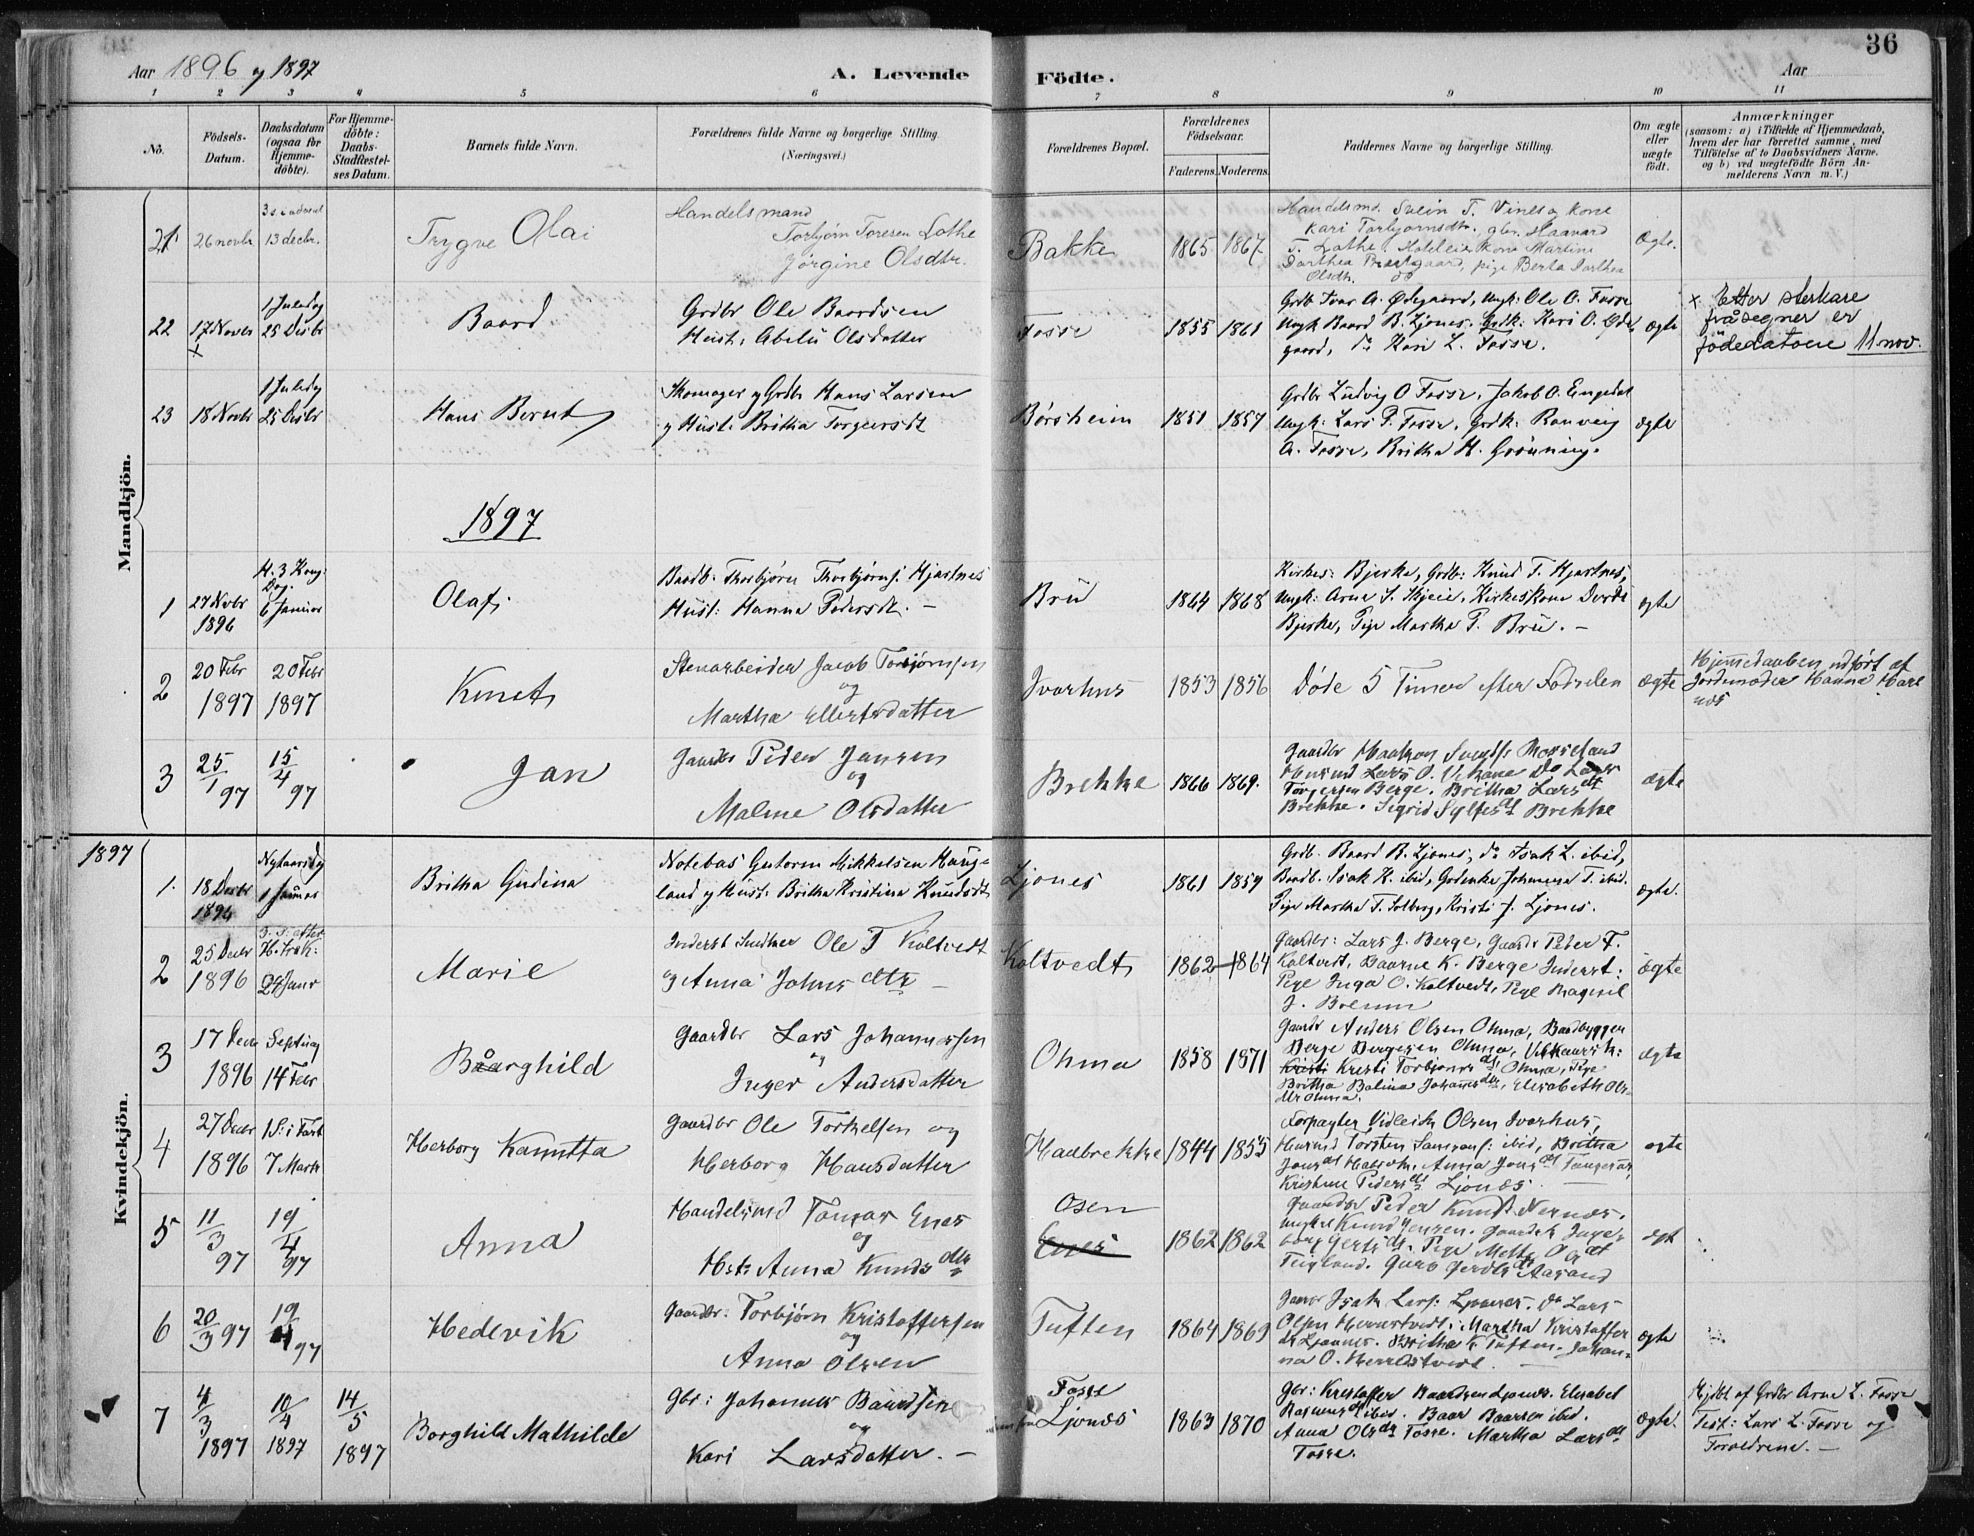 36
Aar 1896 og 1897
A. Levende Födte.
Aar
1 2 3 4 5 6 7 8 9 10 11
No.
Födsels-
Datum.
Daabsdatum
(ogsaa for
Hjemme-
döbte).
For Hjemme-
döbte:
Daabs-
Stadfæstel-
ses Datum.
Barnets fulde Navn.
Forældrenes fulde Navne og borgerlige Stilling.
(Næringsvei.)
Forældrenes Bopæl.
Forældrenes
Födselsaar.
Faderens. Moderens.
Faddernes Navne og borgerlige Stilling.
Om ægte
eller
uægte
födt.
Anmærkninger
(saasom: a) i Tilfælde af Hjemmedaab,
hvem der har forrettet samme, med
Tilföielse af to Daabsvidners Navne.
og b) ved uægtefödte Börn An-
melderens Navn m. V.)
Mandkjön.
21. 26 novbr
13 decbr.
Trygve Olai
Handelsmand
Torbjørn Toresen Lothe
Jørgine Olsdtr.
Bakke 1865 1867.
Handelsmd. Svein T. Vines og kone
Kari Torbjørnsdtr. gbr. Haavard
T. Lothe, kone Martine
Dorthea Præstgaard, pige Berta Dorthea
Olsdtr.
Ægte.
22 17 Novbr
x
1 Juledag
25 Decbr
Baard
Grdbr Ole Baardsen
Hust. Abelu Olsdatter
Fosse 1855 1861
Grdb Ivar A. Ødegaard, Ungk: Ole O. Fosse
Ungk Baard B. Ljones. Grdk: Kari O. Øde
gaard, do Kari L. Fosse.
ægte
x Etter sterkare
fråsegner er
födedatoen 11 nov.
23 18 Novbr
1 Juledag
25 Decbr
Hans Bernt
Skomager og Grdbr Hans Larsen
og Hust: Britha Torgersdt
Børsheim 1851 1857
Grdbr Ludvig O Fosse, Jakob O. Engedal
Ungk: Lars P. Fosse, Grdk: Ranveig
A. Fosse, Britha H. Grønning.
ægte
1897
1 27 Novbr
1896
H. 3 Kong:
Dag.
6 Januar
Olaf
Baadb: Thorbjørn Thorbjørns. Hjartnes
Hust: Hanna Pedersdt. –
Bru 1864 1868
Kirkes: Bjerke, Grdb: Knud T. Hjartnes,
Ungk: Arne S. Skjeie, Kirkeskone Dorde
Bjerke, Pige Martha P. Bru. –
ægte
2 20 Febr
1897
20 Febr
1897
Knut
Stenarbeider Jacob Torbjørnsen
og
Martha Ellertsdatter
Ivarhus 1853 1856
Døde 5 Timer efter Fødselen
ægte
Hjemedaaben udført af
Jordemoder Hanna Hare
næs
3 25/1 97
15/4 97
Jan
Gaardbr Peder Jansen
og
Malene Olsdatter
Brekke 1866 1869.
Gaardbr Haakon Svends. Mosseland
Husmd Lars O. Vikane Do Lars
Torgersen Berge. Britha Larsdt
Brekke. Sigrid Sylfesdt Brekke
ægte
1897
Kvindekjön.
1. 18 Decbr
1896
Nytaarsdag
1 Januar
Britha Gudina
Notebas Gutorm Mikkelsen Haug-
land og Hust: Britha Kristina Knudsdt
Ljones 1861 1859
Grdb. Baard B. Ljones, do Isak L. ibid,
Baadb. Isak K. ibid, Grdenke Johanna T. ibid.
Pige Martha T. Solberg, Kristi J. Ljones.
ægte.
2 25 Decbr
1896
3. S. efter
H. Tr. K:
24 Januar
Marie
Inderst Snedker Ole T Koltvedt
og Anna Johns dtr –
Koltvedt 1862 1864
Gaardbr: Lars J. Berge, Gaardbr Peder T.
Koltvedt, Baarne K. Berge Inderst:
Pige Inga O. Koltvedt, Pige Magnil
J. Broenn
ægte
3 17 Decbr
1896
Septuag
14 Febr
Baarghild
Gaardbr Lars Johannessen
og
Inger Andersdatter
Ohma 1858 1871
Gaardbr Anders Olsen Ohma, Baadbygger
Berge Bergesen Ohma,
Kristi Torbjørns dt Ohma, Pige
Britha Balina Johannes dtr, Elisabeth Ols-
dtr Ohma.
ægte
4 27 Decbr
1896
1 S: i Fast
7 Marts
Herborg Kanutta
Gaardbr Ole Torkelsen og
Herborg Hansdatter
Haabrekke 1844 1855
Forpagter Vidleik Olsen Ivarhus,
Husmd Torsten Samsons. ibid, Britha
Jonsdt, Anna Jonsdt Tangeraas,
Kristine Pedersdt Ljonæs. –
ægte
5 11/3 97
19/4 97
Anna
Handelsmd Tomas Enes
og
Hstr Anna Knuds dtr
Osen
Enes 1862 1862
Gaardbr Peder Knuts. Nernæs,
ungkr Knud Jensen. Gaardek Inge-
borg Gertsdt. Pige Mette Olsdt
Teigland. Guro Gerdtsdt Aasand
ægt
6 20/3 97
19/4 97
Hedevik
Gaardbr: Torbjørn Kristoffersen
og
Anna Olsen
Tuften 1864 1869
Gaardbr Isak Lars: Ljones. Do Lars
Olsen Herrestvedt. Martha Kristoffer
dt Ljones. Britha K. Tuften. Johan-
na O. Herrestvedt.
ægte
7 4/3
1897
10/4
1897
14/5
1897
Borghild Mathilde
Gbr: Johannes Baardsen
og
Kari Larsdatter. –
Fosse
Ljonæs 1863 1870
Gbr: Kristoffer Baardsen Ljones. Elisabet
Rasmusdt ibid. Baar Baarsen ibid.
Anna Olsdt Fosse. Martha Larsdt
Fosse.
ægte.
Hjdbt af Grdbr Arne L. Fosse
Test: Lars L. Fosse og
Forældrene. –